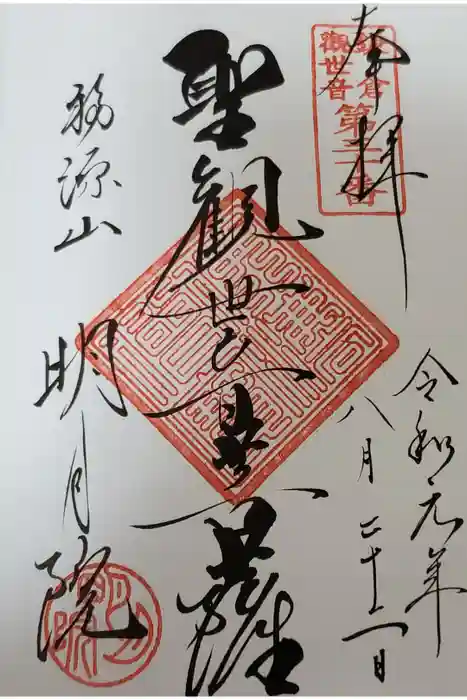 奉拝
鎌倉
觀世音
第三十番
令和元年
八月二十二日
聖観世音菩薩
福源山
明月院